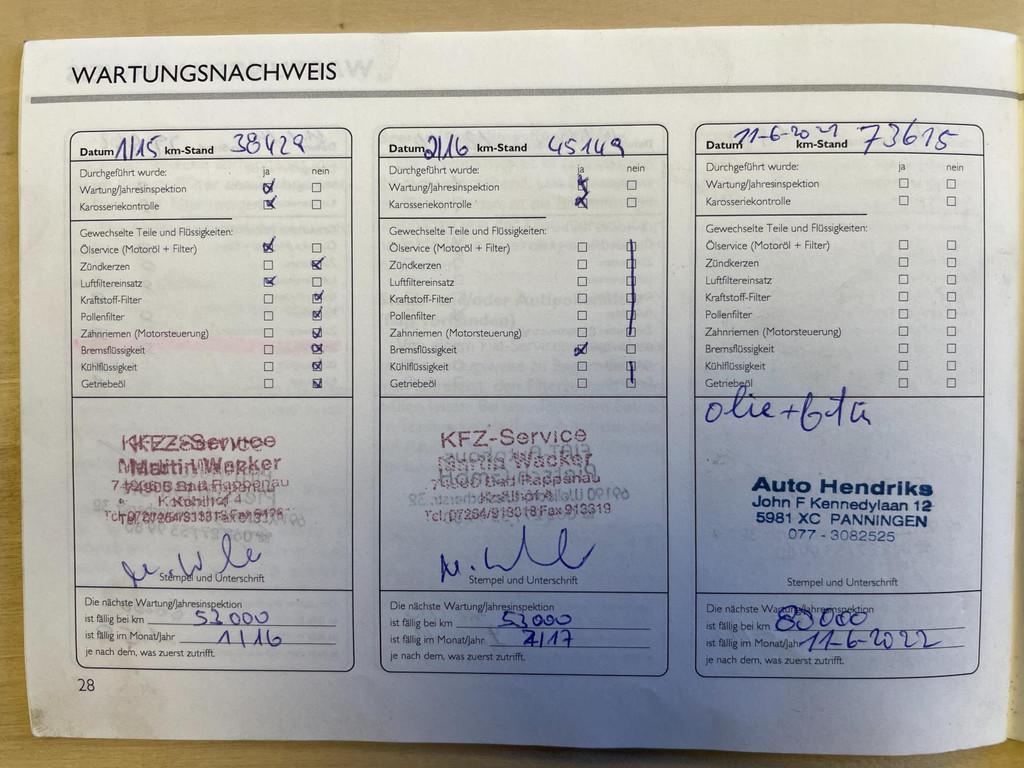 WARTUNGSNACHWEIS
Datum 1/15 km-Stand 38429
Durchgeführt wurde: ja nein
Wartung/Jahresinspektion
Karosseriekontrolle
Gewechselte Teile und Flüssigkeiten:
Ölservice (Motoröl + Filter)
Zündkerzen
Luftfiltereinsatz
Kraftstoff-Filter
Pollenfilter
Zahnriemen (Motorsteuerung)
Bremsflüssigkeit
Kühlflüssigkeit
Getriebeöl
KFZ-Service
Martin Wacker
Bad Rappenau
Stempel und Unterschrift
Die nächste Wartung/Jahresinspektion
ist fällig bei km 53000
ist fällig im Monat/Jahr 1/16
je nach dem, was zuerst zutrifft.
28
Datum 2/16 km-Stand 45149
Durchgeführt wurde: ja nein
Wartung/Jahresinspektion
Karosseriekontrolle
Gewechselte Teile und Flüssigkeiten:
Ölservice (Motoröl + Filter)
Zündkerzen
Luftfiltereinsatz
Kraftstoff-Filter
Pollenfilter
Zahnriemen (Motorsteuerung)
Bremsflüssigkeit
Kühlflüssigkeit
Getriebeöl
KFZ-Service
Martin Wacker
Bad Rappenau
Tel. 07264/913318 Fax 913319
Stempel und Unterschrift
Die nächste Wartung/Jahresinspektion
ist fällig bei km 53000
ist fällig im Monat/Jahr 2/17
je nach dem, was zuerst zutrifft.
Datum 11-6-2021 km-Stand 73615
Durchgeführt wurde: ja nein
Wartung/Jahresinspektion
Karosseriekontrolle
Gewechselte Teile und Flüssigkeiten:
Ölservice (Motoröl + Filter)
Zündkerzen
Luftfiltereinsatz
Kraftstoff-Filter
Pollenfilter
Zahnriemen (Motorsteuerung)
Bremsflüssigkeit
Kühlflüssigkeit
Getriebeöl
olie +
Auto Hendriks
John F Kennedylaan 12
5981 XC PANNINGEN
077 - 3082525
Stempel und Unterschrift
Die nächste Wartung/Jahresinspektion
ist fällig bei km 83000
ist fällig im Monat/Jahr 11-6-2022
je nach dem, was zuerst zutrifft.